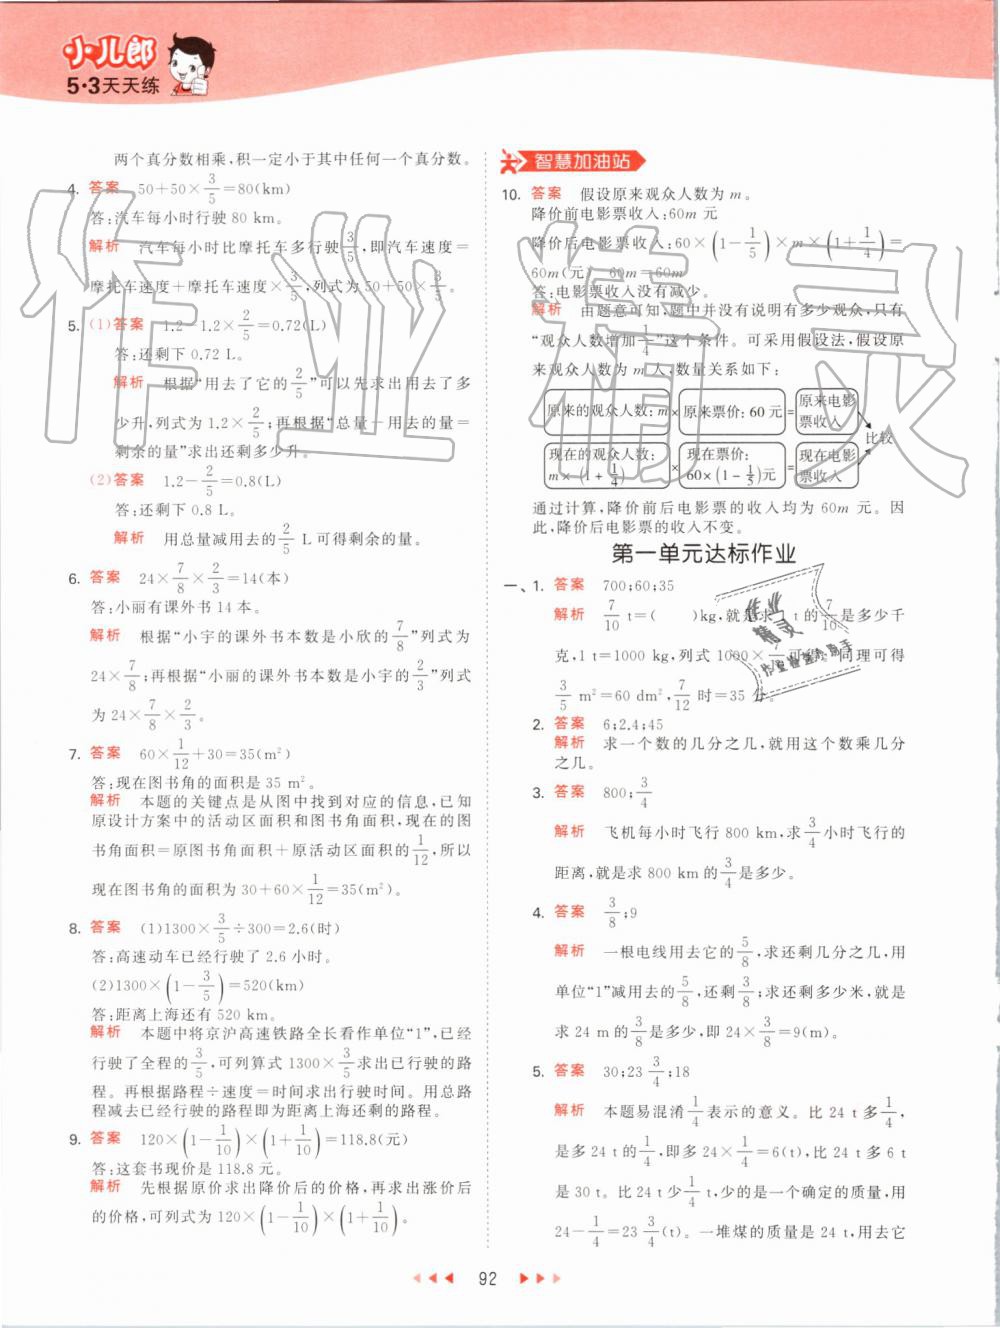 小儿郎
5·3天天练
两个真分数相乘,积一定小于其中任何一个真分数。
4. 答案 50+50×3/5=80(km)
答:汽车每小时行驶 80 km。
解析 汽车每小时比摩托车多行驶3/5,即汽车速度=
摩托车速度+摩托车速度×3/5,列式为50+50×3/5。
5. (1)答案 1.2-1.2×2/5=0.72(L)
答:还剩下 0.72 L。
解析 根据“用去了它的2/5”可以先求出用去了多
少升,列式为 1.2×2/5;再根据“总量-用去的量=
剩余的量”求出还剩多少升。
(2)答案 1.2-2/5=0.8(L)
答:还剩下 0.8 L。
解析 用总量减用去的2/5 L可得剩余的量。
6. 答案 24×7/8×2/3=14(本)
答:小丽有课外书 14 本。
解析 根据“小宇的课外书本数是小欣的7/8”列式为
24×7/8;再根据“小丽的课外书本数是小宇的2/3”列式
为 24×7/8×2/3。
7. 答案 60×1/12+30=35(m²)
答:现在图书角的面积是 35 m²。
解析 本题的关键点是从图中找到对应的信息,已知
原设计方案中的活动区面积和图书角面积,现在的图
书角面积=原图书角面积+原活动区面积的1/12,所以
现在图书角的面积为 30+60×1/12=35(m²)。
8. 答案 (1)1300×3/5÷300=2.6(时)
答:高速动车已经行驶了 2.6 小时。
(2)1300×(1-3/5)=520(km)
答:距离上海还有 520 km。
解析 本题中将京沪高速铁路全长看作单位“1”,已经
行驶了全程的3/5,可列算式 1300×3/5求出已行驶的路
程。再根据路程÷速度=时间求出行驶时间。用总路
程减去已经行驶的路程即为距离上海还剩的路程。
9. 答案 120×(1-1/10)×(1+1/10)=118.8(元)
答:这套书现价是 118.8 元。
解析 先根据原价求出降价后的价格,再求出涨价后
的价格,可列式为 120×(1-1/10)×(1+1/10)。
智慧加油站
10. 答案 假设原来观众人数为 m。
降价前电影票收入:60m 元
降价后电影票收入:60×(1-1/5)×m×(1+1/4)=
60m(元) 60m=60m
答:电影票收入没有减少。
解析 由题意可知,题中并没有说明有多少观众,只有
“观众人数增加1/4”这个条件。可采用假设法,假设原
来观众人数为 m 人,数量关系如下:
原来的观众人数:m × 原来票价:60 元 = 原来电影票收入
比较
现在的观众人数:m×(1+1/4) × 现在票价:60×(1-1/5)元 = 现在电影票收入
通过计算,降价前后电影票的收入均为 60m 元。因
此,降价后电影票的收入不变。
第一单元达标作业
一、1. 答案 700;60;35
解析 7/10 t=( )kg,就是求 1 t 的7/10是多少千
克,1 t=1000 kg,列式 1000×7/10可得;同理可得
3/5 m²=60 dm²,7/12 时=35 分。
2. 答案 6;2.4;45
解析 求一个数的几分之几,就用这个数乘几分
之几。
3. 答案 800;3/4
解析 飞机每小时飞行 800 km,求3/4小时飞行的
距离,就是求 800 km 的3/4是多少。
4. 答案 3/8;9
解析 一根电线用去它的5/8,求还剩几分之几,用
单位“1”减用去的5/8,还剩3/8;求还剩多少米,就是
求 24 m 的3/8是多少,即 24×3/8=9(m)。
5. 答案 30;23 3/4;18
解析 本题易混淆1/4表示的意义。比 24 t 多1/4,
是多 24 t 的1/4,即多 24×1/4=6(t),比 24 t 多 6 t
是 30 t。比 24 t 少1/4 t,少的是一个确定的质量,用
24-1/4=23 3/4(t)。一堆煤的质量是 24 t,用去它
92
作业精灵
作业精灵